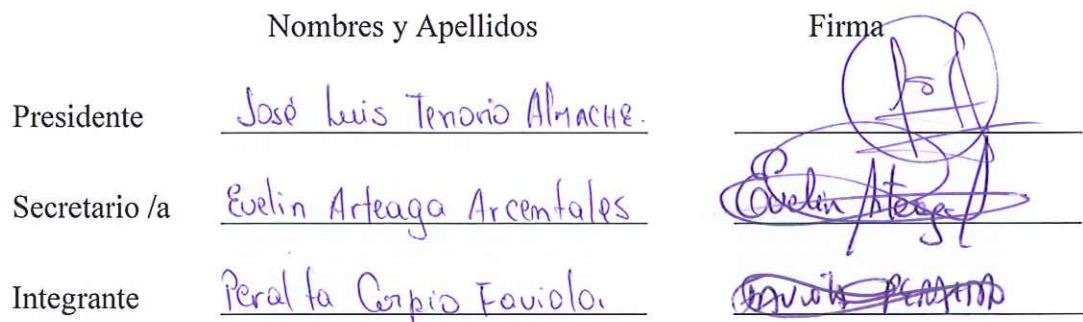 Nombres y Apellidos Firma
Presidente José Luis Tenorio Almache.
Secretario /a Evelin Arteaga Arcentales Evelin Arteaga
Integrante Peralta Carpio Faviola. Faviola Peralta